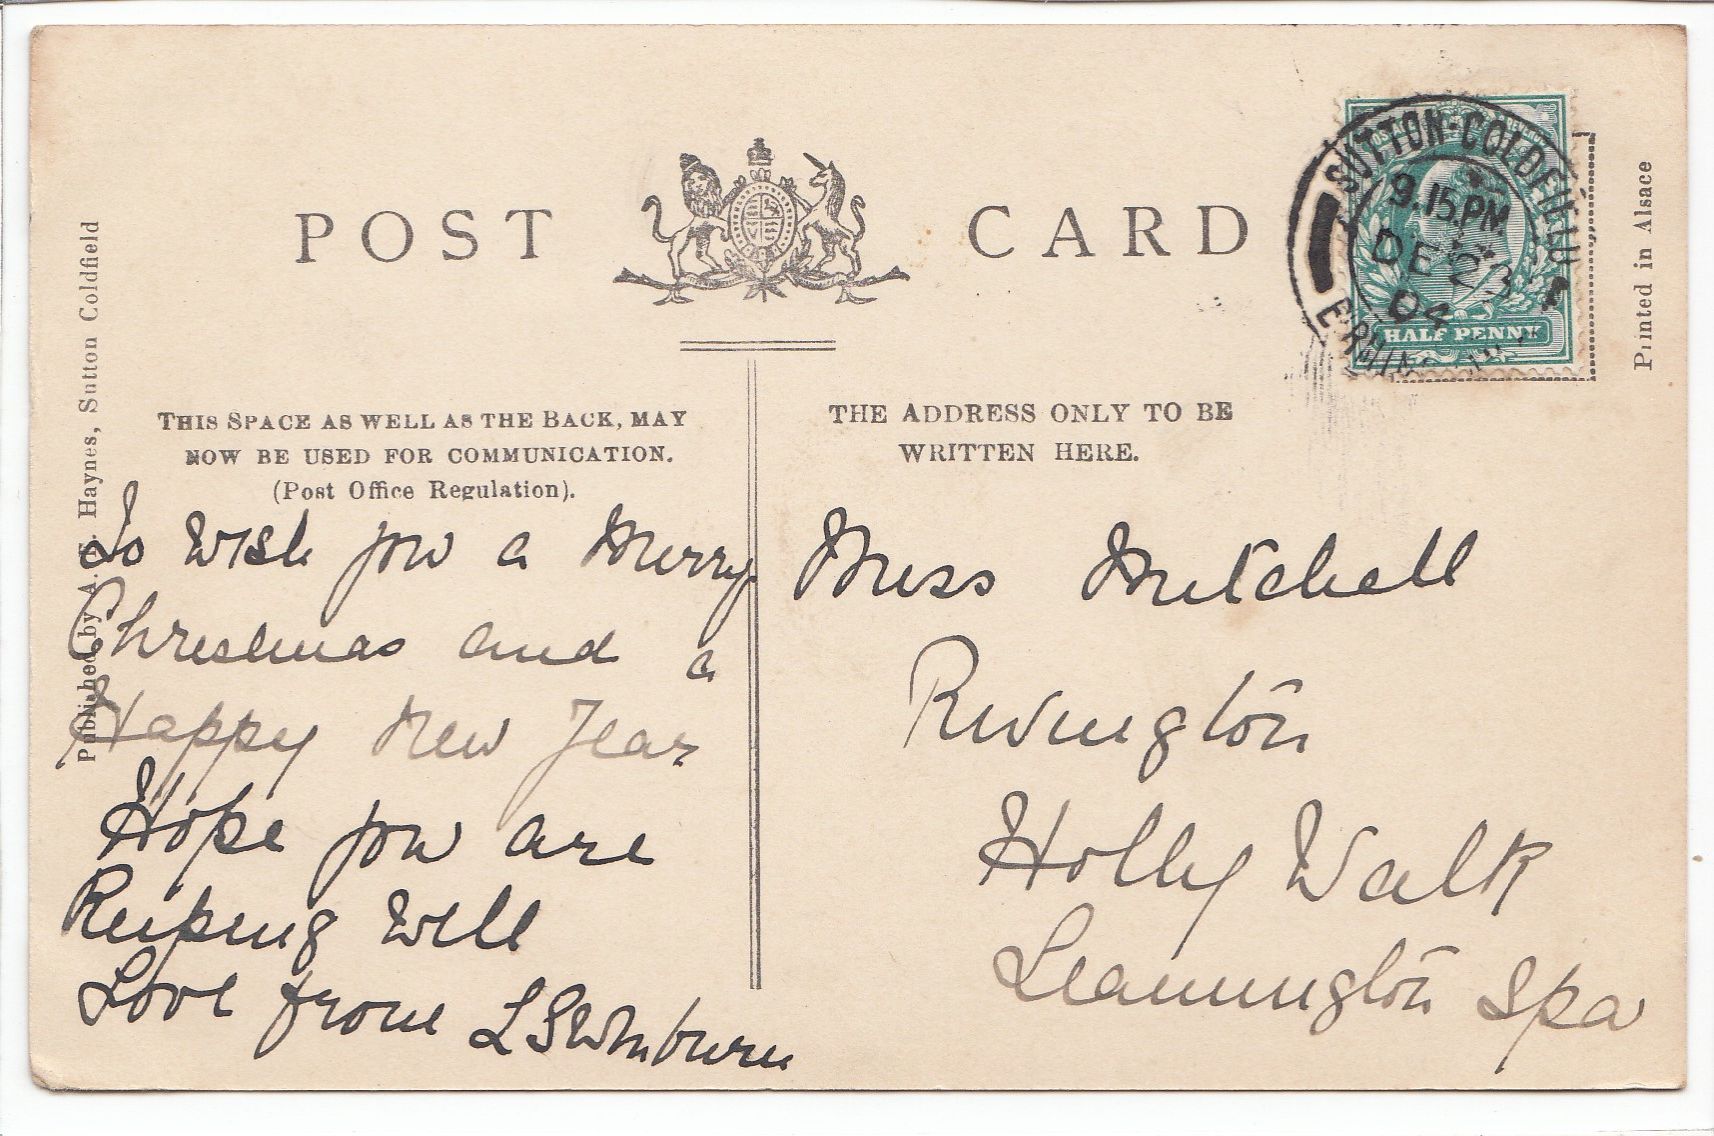 POST CARD
Published by A. Haynes, Sutton Coldfield
Printed in Alsace
SUTTON-COLDFIELD
9.15PM
DE 23
04
HALF PENNY
THIS SPACE AS WELL AS THE BACK, MAY
NOW BE USED FOR COMMUNICATION.
(Post Office Regulation).
To Wish you a Merry
Christmas and a
Happy New Year
Hope you are
Keeping Well
Love from L
THE ADDRESS ONLY TO BE
WRITTEN HERE.
Miss Mitchell
Rivington
Holly Walk
Leamington Spa